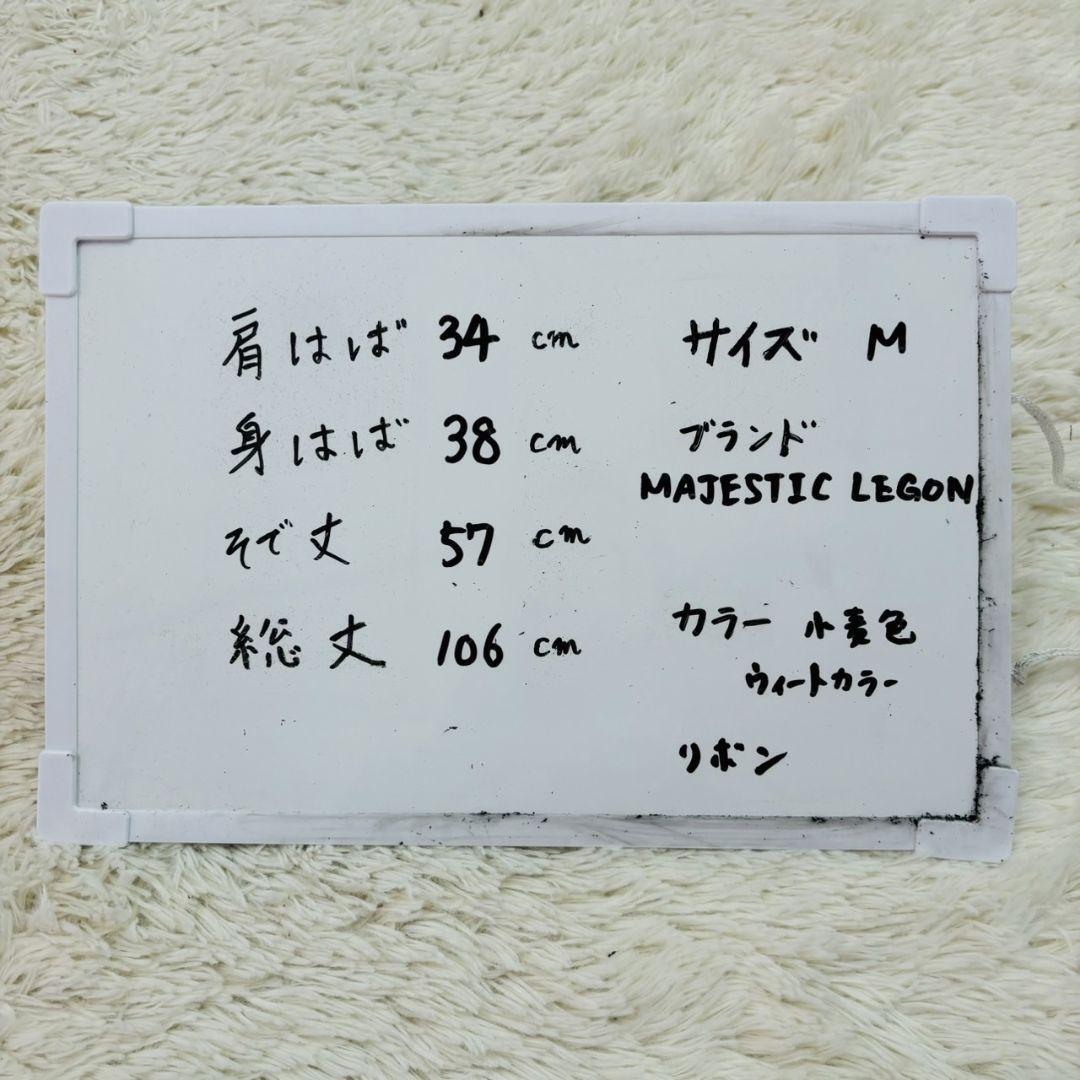 肩はば 34 cm
身はば 38 cm
そで丈 57 cm
総丈 106 cm
サイズ M
ブランド
MAJESTIC LEGON
カラー 小麦色
ウィートカラー
リボン